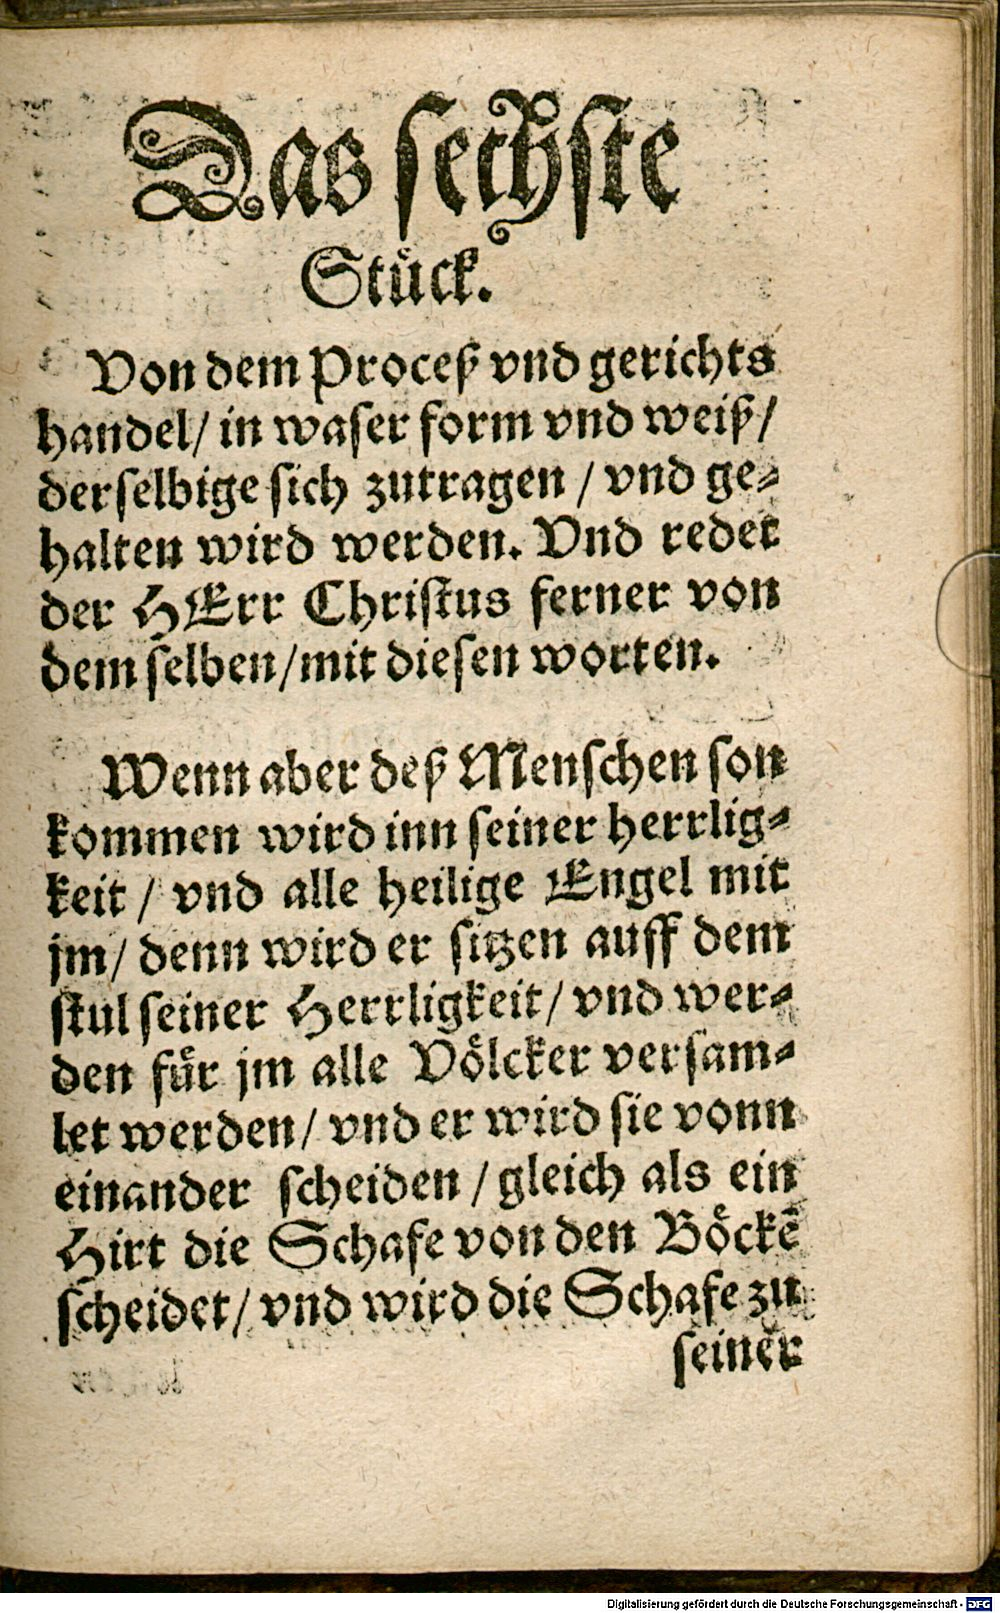 Das sechste
Stück.
Von dem Proceß vnd gerichts
handel/ in waser form vnd weiß/
derselbige sich zutragen / vnd ge-
halten wird werden. Vnd redet
der HErr Christus ferner von
dem selben/mit diesen worten.
Wenn aber deß Menschen son
kommen wird inn seiner herrlig-
keit / vnd alle heilige Engel mit
jm/ denn wird er sitzen auff dem
stul seiner Herrligkeit/ vnd wer-
den für jm alle Völcker versam-
let werden/ vnd er wird sie vonn
einander scheiden / gleich als ein
Hirt die Schafe von den Böckē
scheidet/ vnd wird die Schafe zu
seiner
Digitalisierung gefördert durch die Deutsche Forschungsgemeinschaft - DFG